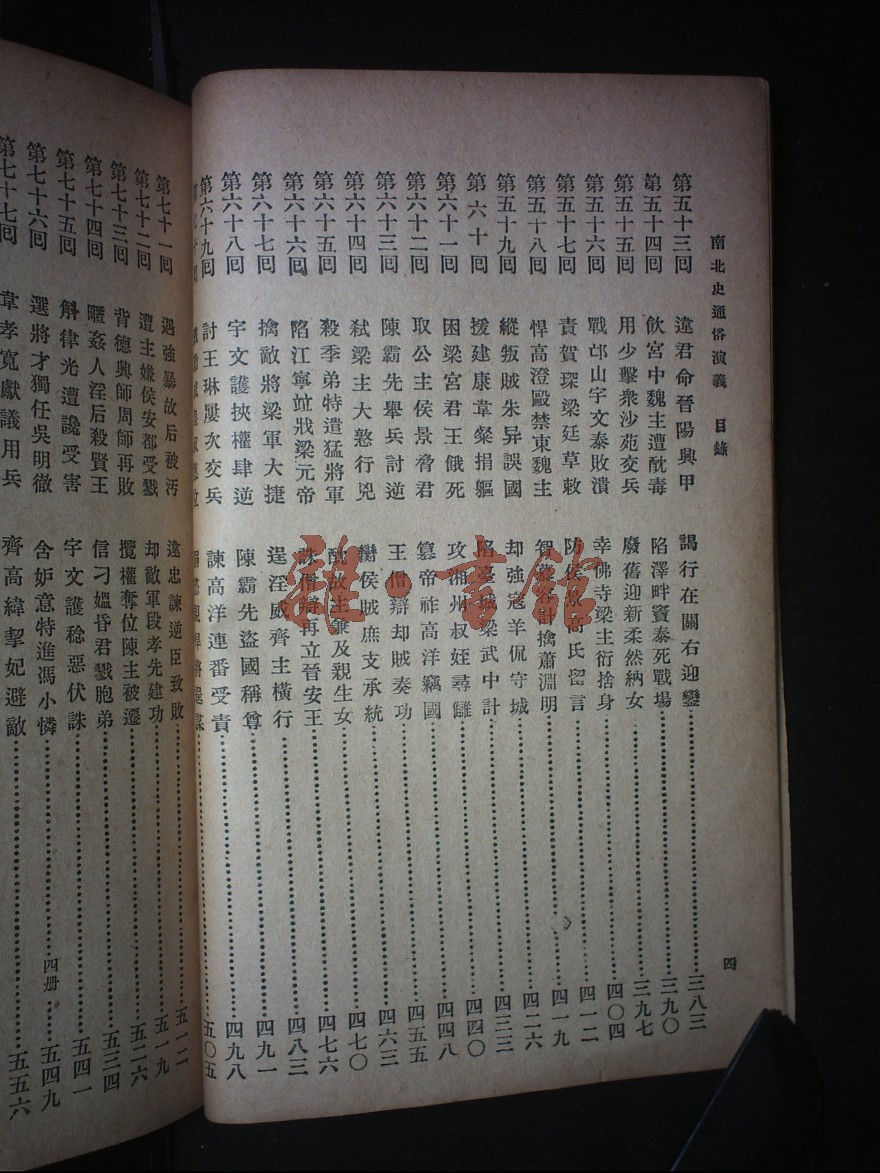 南北史通俗演義 目錄
四
第五十三回 違君命晉陽興甲 謁行在關右迎鑾 三八三
第五十四回 飲宮中魏主遭酖毒 陷澤畔竇泰死戰場 三九〇
第五十五回 用少擊衆沙苑交兵 廢舊迎新柔然納女 三九七
第五十六回 戰邙山宇文泰敗潰 幸佛寺梁主衍捨身 四〇四
第五十七回 責賀琛梁廷草敕 防侯景高氏留言 四一二
第五十八回 悍高澄毆禁東魏主 智慕容計擒蕭淵明 四一九
第五十九回 縱叛賊朱异誤國 却強寇羊侃守城 四二六
第六十回 援建康韋粲捐軀 陷臺城梁武中計 四三三
第六十一回 困梁宮君王餓死 攻湘州叔姪尋讎 四四〇
第六十二回 取公主侯景脅君 篡帝祚高洋竊國 四四八
第六十三回 陳霸先舉兵討逆 王僧辯却賊奏功 四五五
第六十四回 弒梁主大憝行兇 臠侯賊庶支承統 四六三
第六十五回 殺季弟特遣猛將軍 酖故主兼及親生女 四七〇
第六十六回 陷江寧竝戕梁元帝 誅僧辯再立晉安王 四七六
第六十七回 擒敵將梁軍大捷 逞淫威齊主橫行 四八三
第六十八回 宇文護挾權肆逆 陳霸先盜國稱尊 四九一
第六十九回 討王琳屢次交兵 諫高洋連番受責 四九八
五〇五
第七十一回 遇強暴故后被汚 違忠諫逆臣致敗 五一二
第七十二回 遭主嫌侯安都受戮 却敵軍段孝先建功 五一九
第七十三回 背德興師周師再敗 攬權奪位陳主被遷 五二六
第七十四回 暱姦人淫后殺賢王 信刁媼昏君戮胞弟 五三四
第七十五回 斛律光遭讒受害 宇文護稔惡伏誅 五四一
第七十六回 選將才獨任吳明徹 含妒意特進馮小憐 五四九
四册
第七十七回 韋孝寬獻議用兵 齊高緯挈妃避敵 五五六
雜·書館